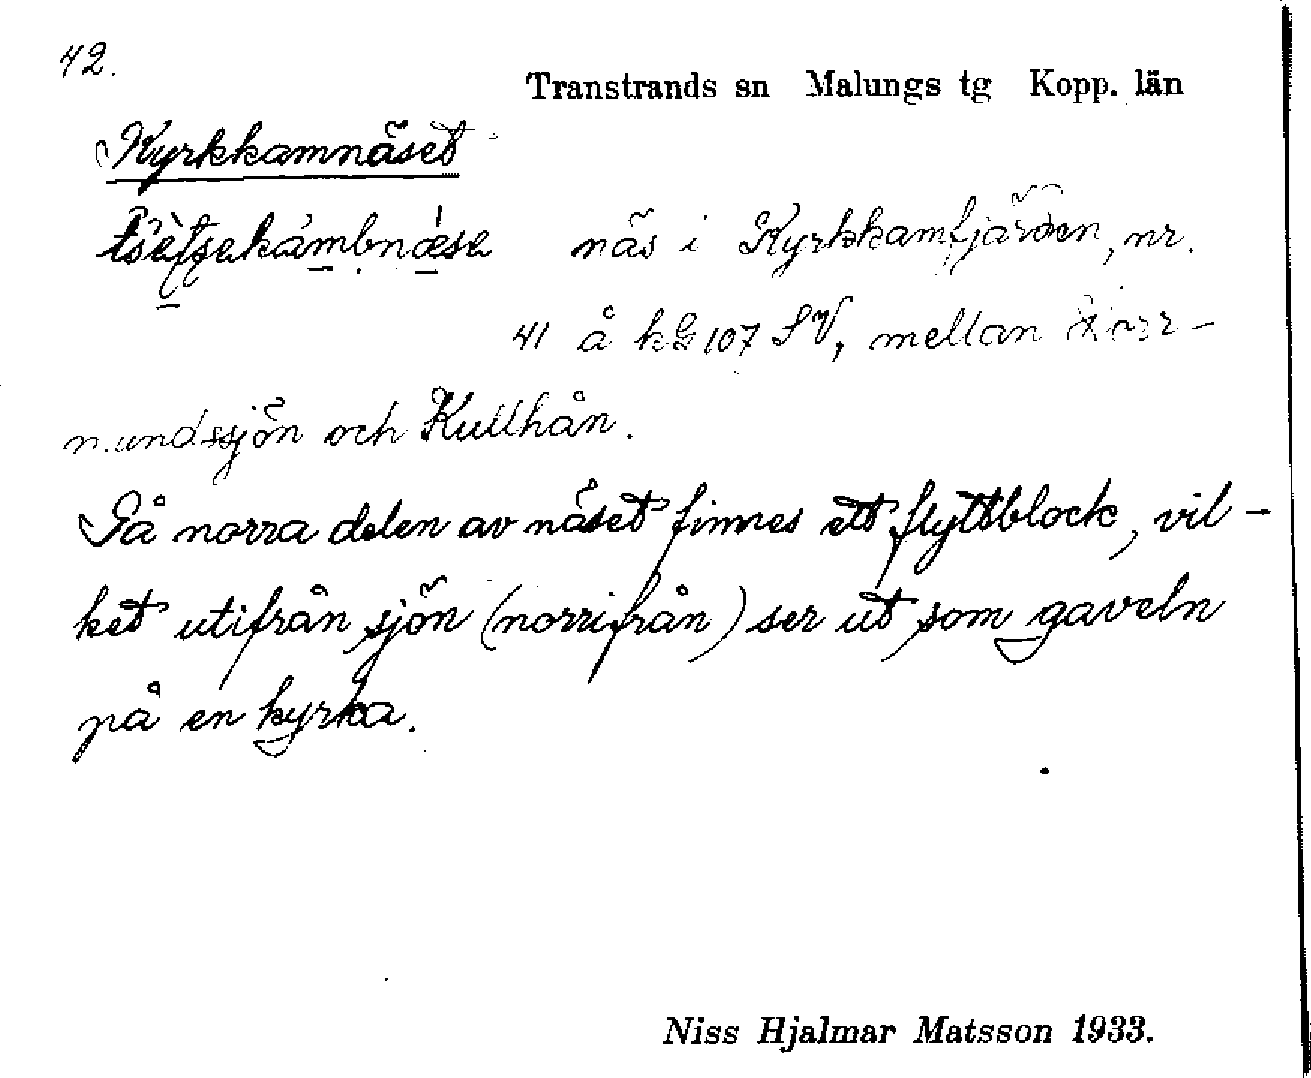 42.
Transtrands sn Malungs tg Kopp. län
Kyrkkamnäset
näs i Kyrkkamfjärden, nr.
41 å kG 107 SV, mellan Horr-
mundssjön och Kullhån.
På norra delen av näset finnes ett flyttblock, vil-
ket utifrån sjön (norrifrån) ser ut som gaveln
på en kyrka.
Niss Hjalmar Matsson 1933.